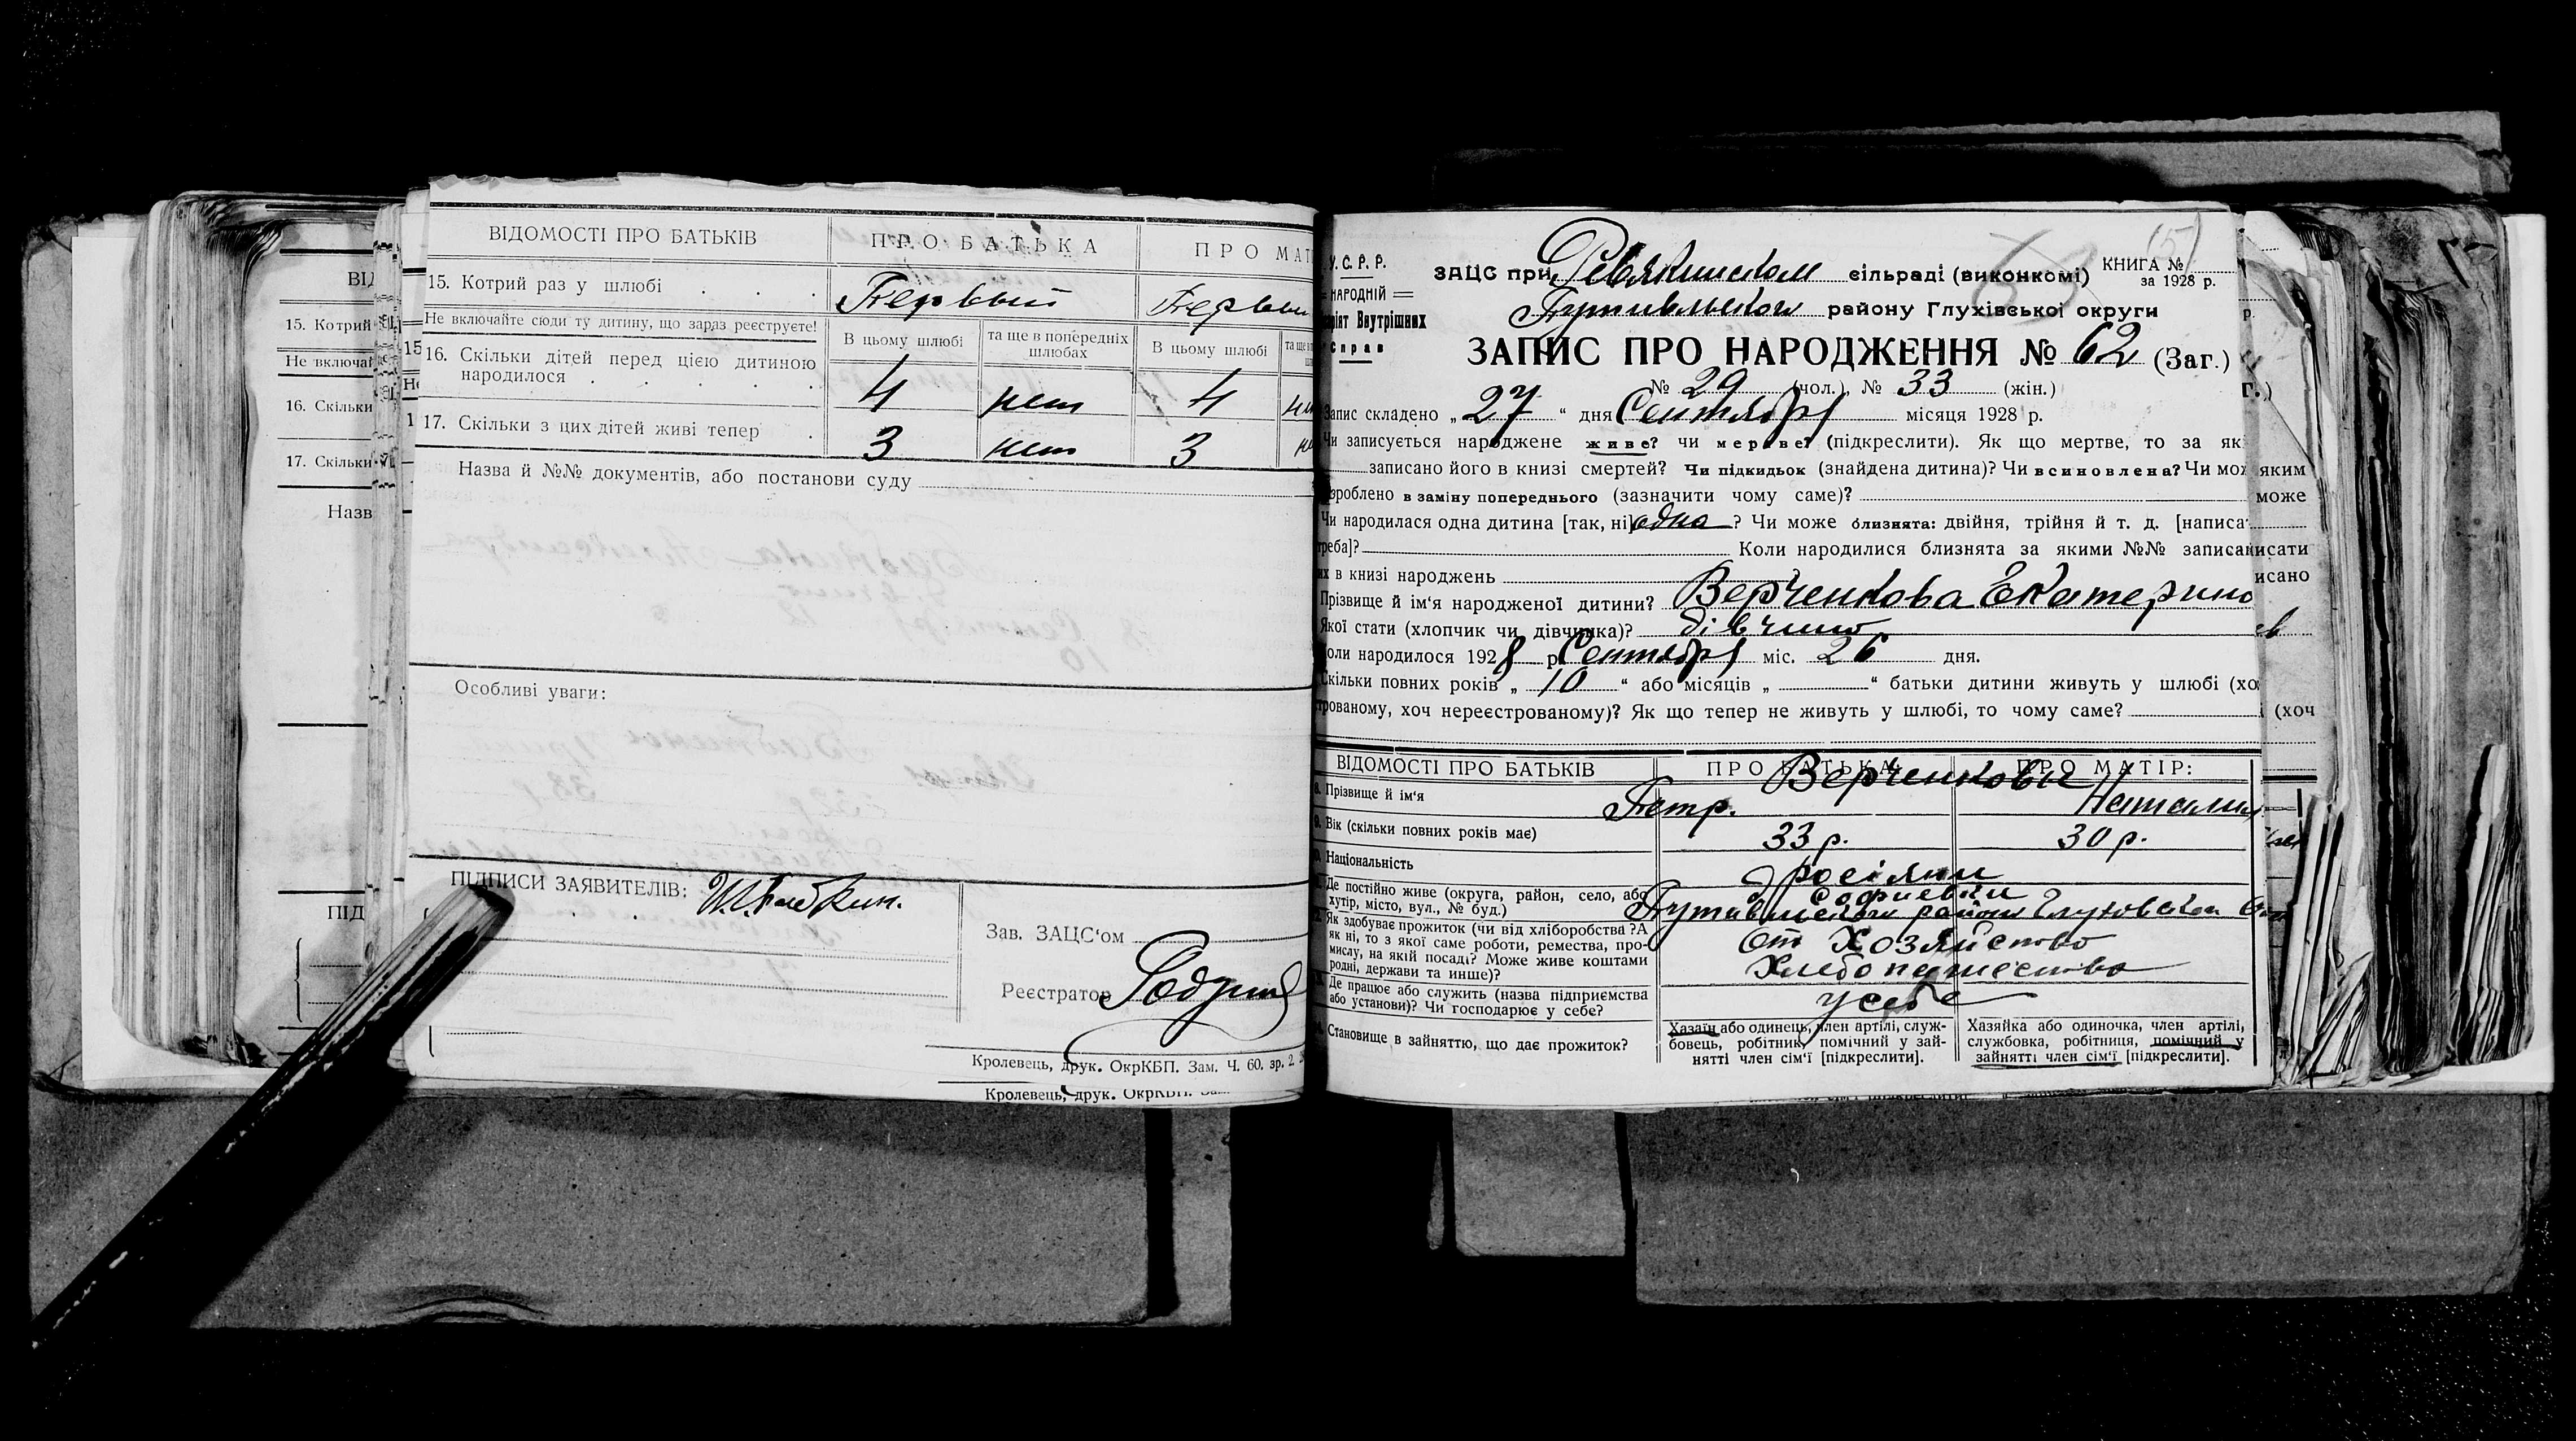 ВІДОМОСТІ ПРО БАТЬКІВ
ПРО БАТЬКА
ПРО МАТ
15. Котрий раз у шлюбі
Первый
Первы
Не включайте сюди ту дитину, що зараз реєструєте!
В цьому шлюбі
та ще в попередніх шлюбах
В цьому шлюбі
16. Скільки дітей перед цією дитиною
народилося
4
нет
4
17. Скільки з цих дітей живі тепер
3
нет
3
Назва й №№ документів, або постанови суду
Особливі уваги:
ПІДПИСИ ЗАЯВИТЕЛІВ:
Зав. ЗАЦС'ом
Реєстратор
Кролевець, друк. ОкрКБП. Зам. Ч. 60. зр. 2.
Кролевець, друк. ОкрКБП.
ВІД
15. Котрий
Не включай
16. Скільки
17. Скільки
Назв
ПІД
У.С.Р.Р.
НАРОДНІЙ
Внутрішних
Справ
ЗАЦС при Ревякинском сільраді (виконкомі)
КНИГА №
за 1928 р.
Путивльском району Глухівської округи
ЗАПИС ПРО НАРОДЖЕННЯ № 62 (Заг.)
№ 29 (чол.), № 33 (жін.)
Запис складено „27“ дня Сентября місяця 1928 р.
Чи записується народжене живе? чи мертве? (підкреслити). Як що мертве, то за як
записано його в книзі смертей? Чи підкидьок (знайдена дитина)? Чи всиновлена? Чи мож
зроблено в заміну попереднього (зазначити чому саме)?
Чи народилася одна дитина [так, ні] одна? Чи може близнята: двійня, трійня й т. д. [написа
треба]? Коли народилися близнята за якими №№ записан
их в книзі народжень
Прізвище й ім'я народженої дитини? Верченкова Екатерина
Якої стати (хлопчик чи дівчинка)? дівчина
Коли народилося 1928 р. Сентября міс. 26 дня.
Скільки повних років „10“ або місяців „ “ батьки дитини живуть у шлюбі (хо
трованому, хоч нереєстрованому)? Як що тепер не живуть у шлюбі, то чому саме?
ВІДОМОСТІ ПРО БАТЬКІВ
ПРО БАТЬКА:
ПРО МАТІР:
Верченковы
Прізвище й ім'я
Петр.
Наталия
Вік (скільки повних років має)
33 р.
30 р.
Національність
росіяни
Де постійно живе (округа, район, село, або
хутір, місто, вул., № буд.)
Софиевки
Путивльского района Глуховской
Як здобуває прожиток (чи від хліборобства? А
як ні, то з якої саме роботи, ремества, про-
мислу, на якій посаді? Може живе коштами
родні, держави та инше)?
от Хозяйство
Хлебопашество
Де працює або служить (назва підприємства
або установи)? Чи господарює у себе?
у себе
Становище в зайняттю, що дає прожиток?
Хазаїн або одинець, член артілі, служ-
бовець, робітник, помічний у зай-
нятті член сім'ї [підкреслити].
Хазяйка або одиночка, член артілі,
службовка, робітниця, помічний у
зайнятті член сім'ї [підкреслити].
яким
може
писати
исано
(хоч